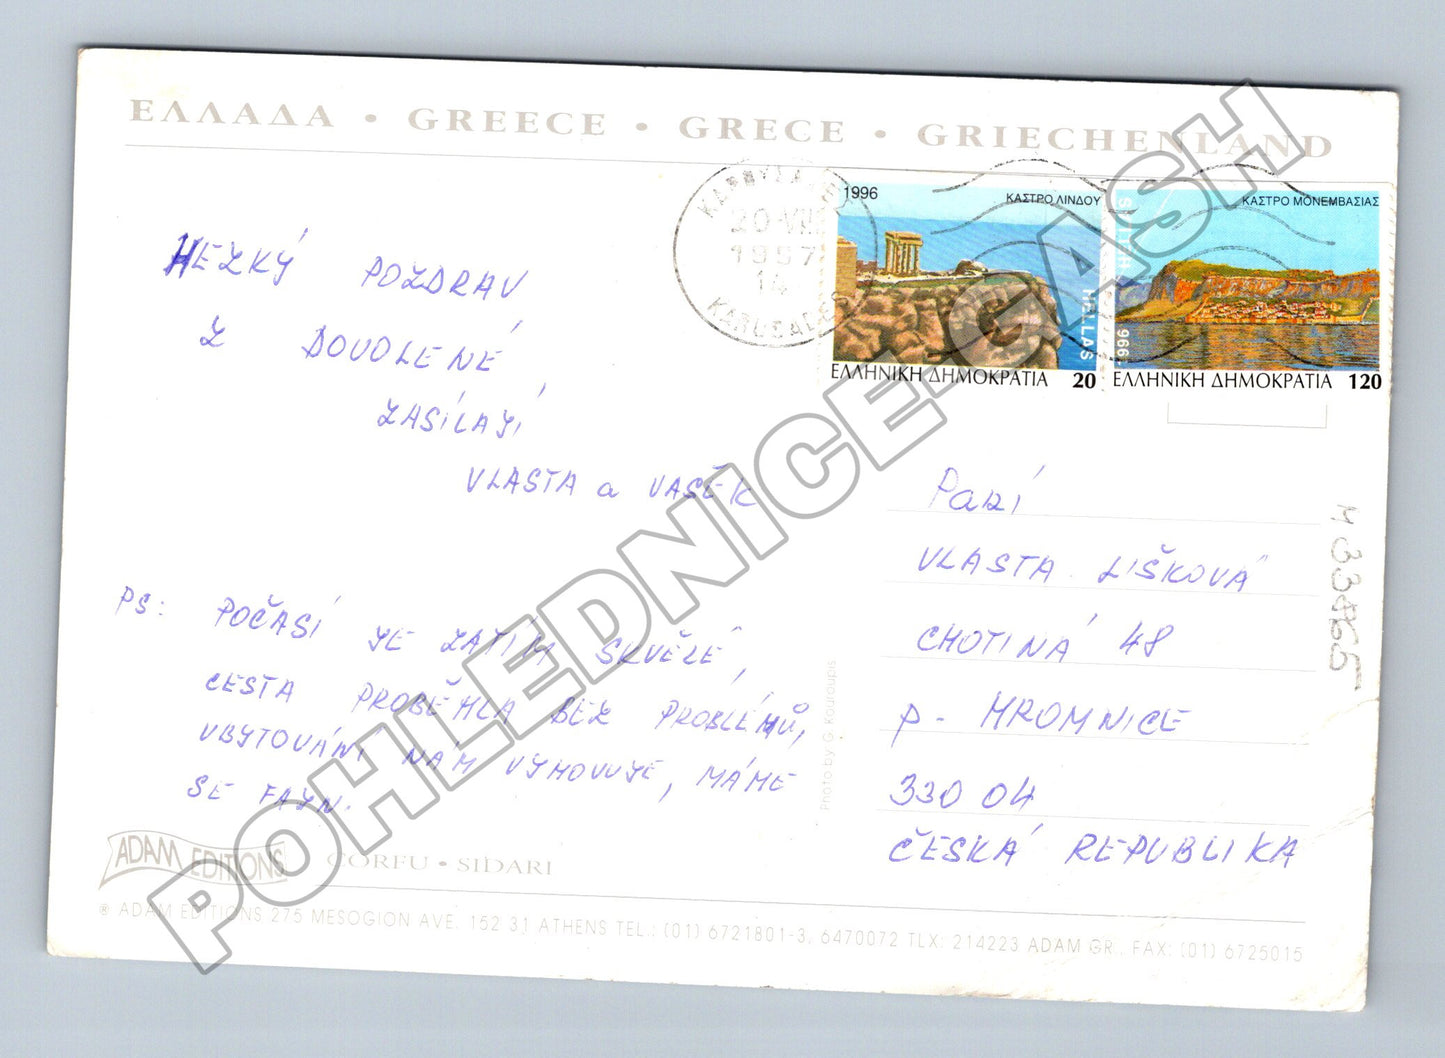 ΕΛΛΑΔΑ • GREECE • GRECE • GRIECHENLAND
20 VIII
1997
14
1996
ΚΑΣΤΡΟ ΛΙΝΔΟΥ
HELLAS
ΕΛΛΗΝΙΚΗ ΔΗΜΟΚΡΑΤΙΑ 20
ΚΑΣΤΡΟ ΜΟΝΕΜΒΑΣΙΑΣ
ΕΛΛΗΝΙΚΗ ΔΗΜΟΚΡΑΤΙΑ 120
HEZKÝ POZDRAV
Z DOVOLENÉ,
ZASÍLAJÍ
VLASTA a VAŠEK
PS: POČASÍ JE ZATÍM SKVĚLÉ,
CESTA PROBĚHLA BEZ PROBLÉMŮ,
UBYTOVÁNÍ NÁM VYHOVUJE, MÁME
SE FAJN.
Paní
VLASTA LIŠKOVÁ
CHOTINÁ 48
p. HROMNICE
330 04
ČESKÁ REPUBLIKA
Photo by G. Kouroupis
ADAM EDITIONS
CORFU • SIDARI
® ADAM EDITIONS 275 MESOGION AVE. 152 31 ATHENS TEL.: (01) 6721801-3, 6470072 TLX: 214223 ADAM GR., FAX: (01) 6725015
POHLEDNICE-CASH